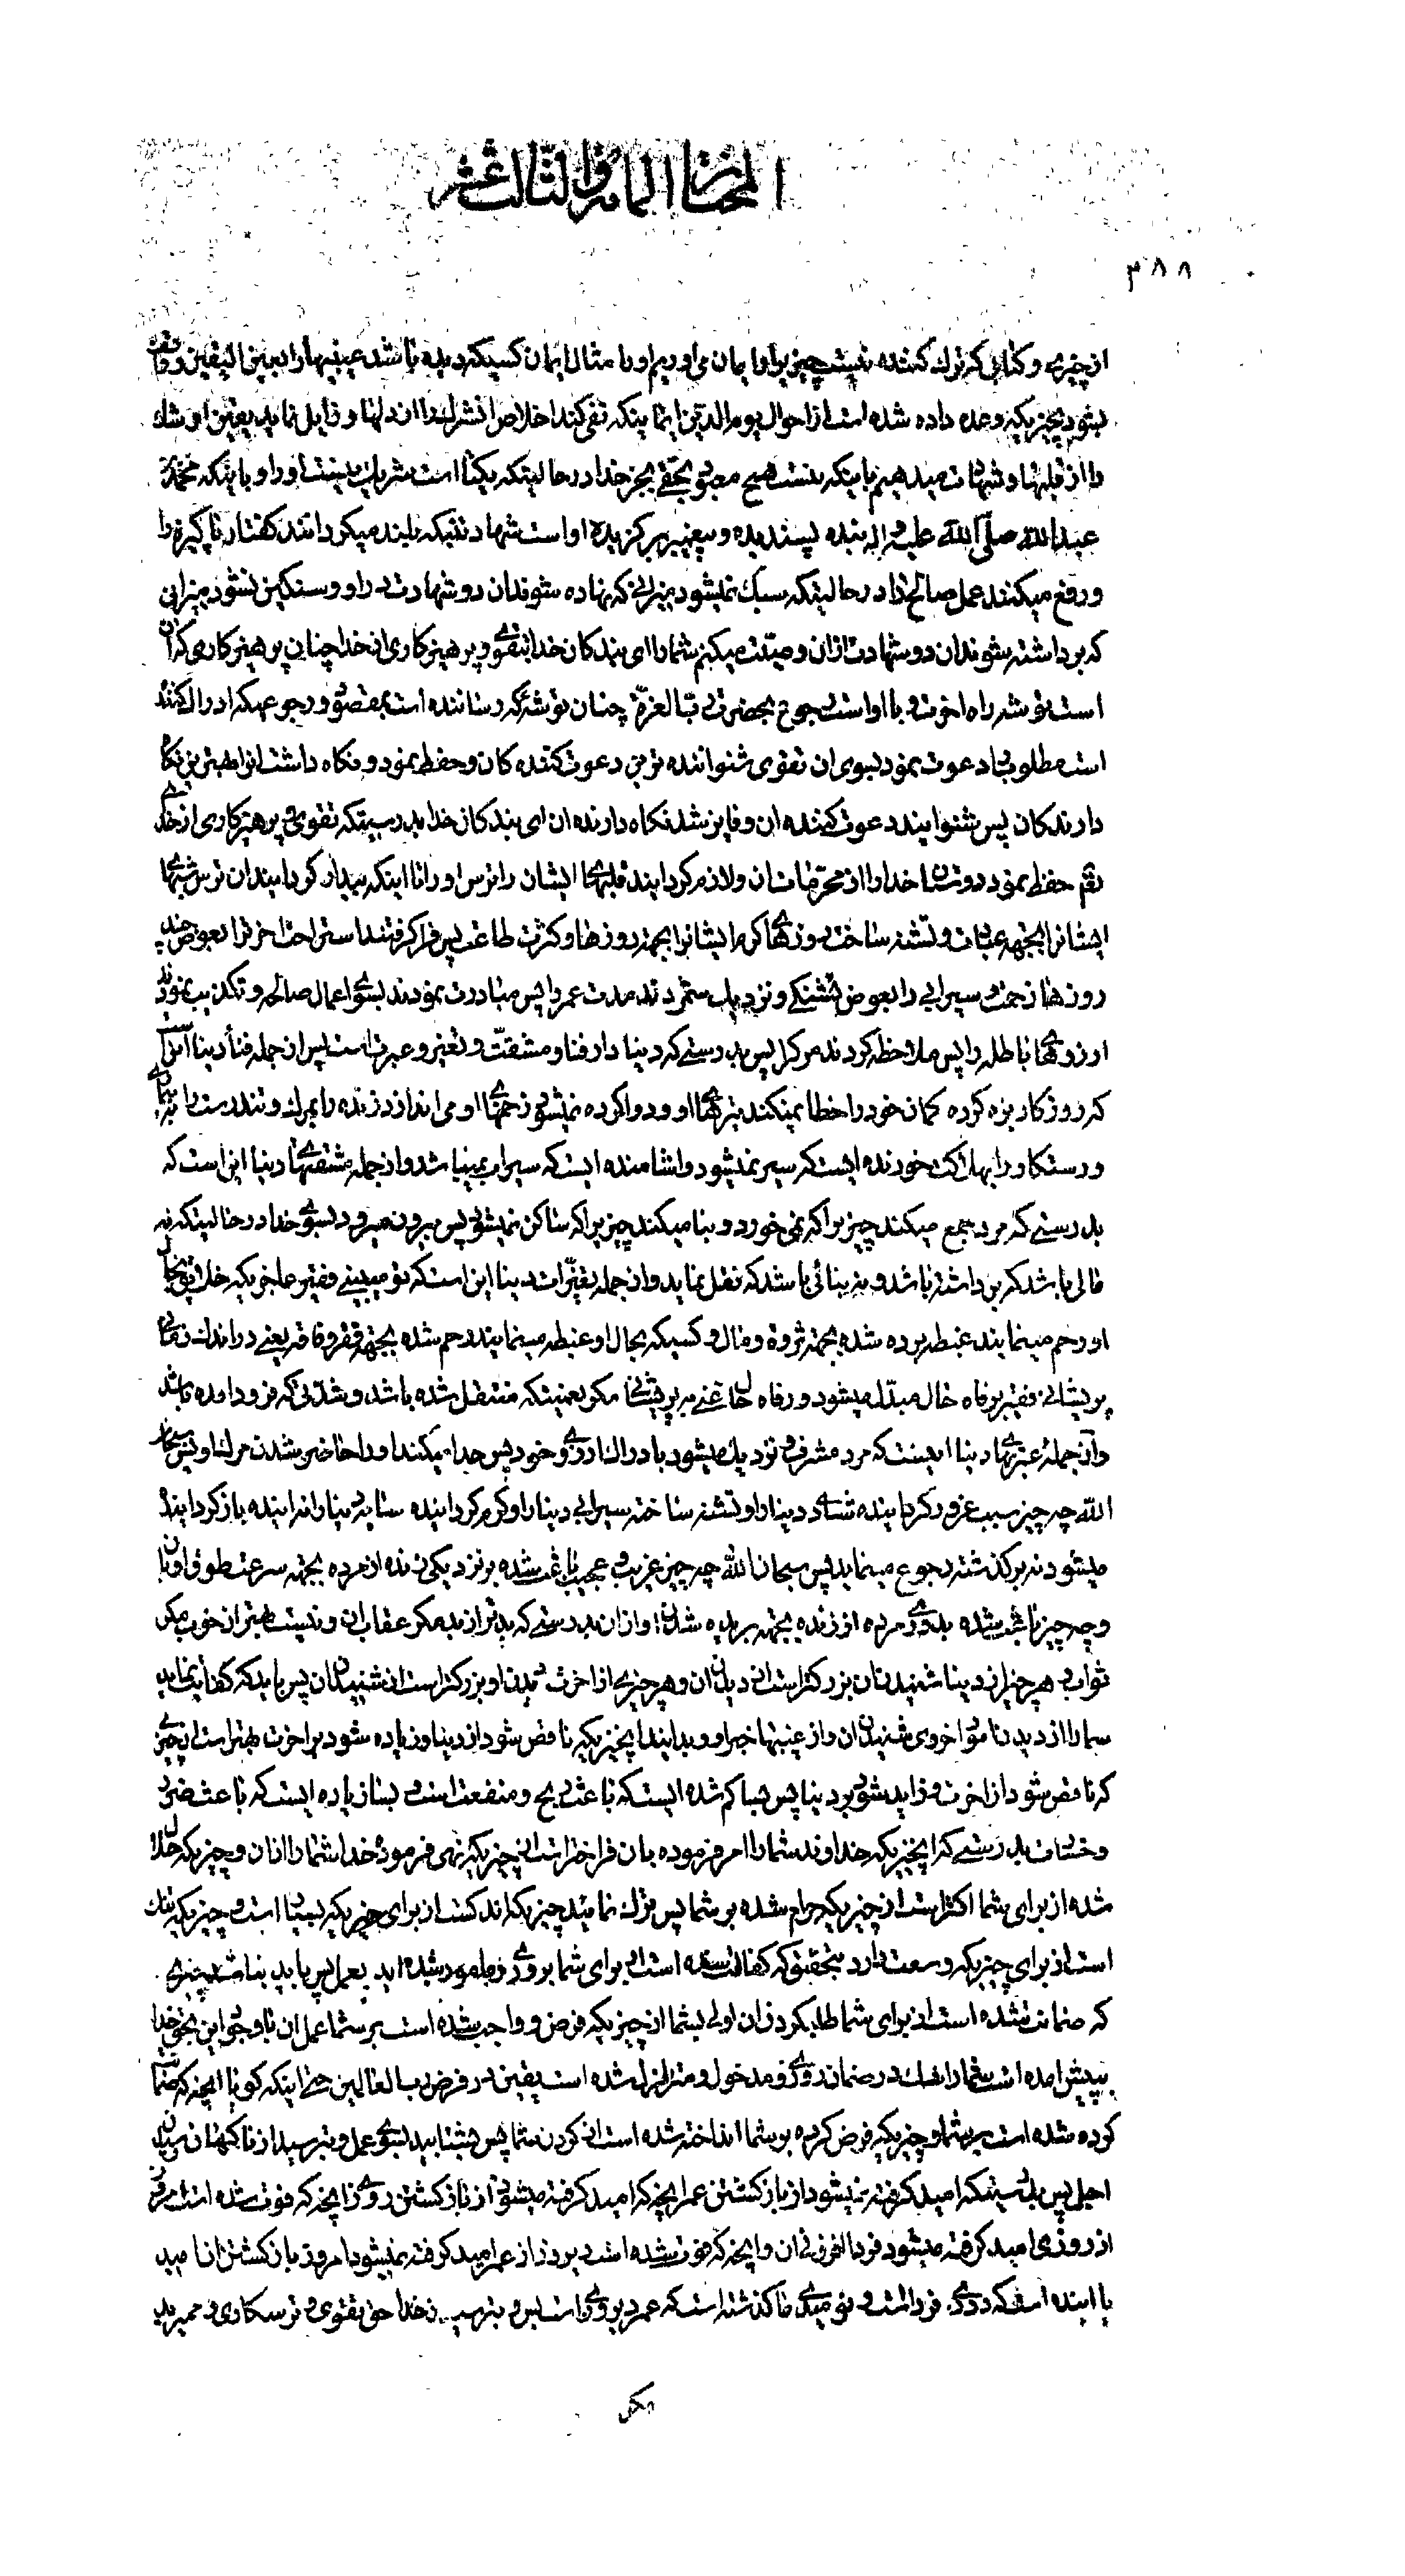 المختار المائة والثالث عشر
۳۸۸
از چیزی و کتابی که ترك کننده نیست چیزیرا و ایمان می اوریم او را مثال ایمان کسیکه دیده باشد غیبها را بعین الیقین و واقف
بشود بچیزیکه وعده داده شده است از احوال یوم الدین ایمانیکه نفی کند اخلاص ان شرك را از دلها و زایل نماید یقین او شك
را از قلبها و شهادت میدهیم باینکه نیست هیچ معبود بحقی بجز خدا در حالیتکه یکتا است شریك نیست او را و باینکه محمد بن
عبدالله صلّی الله علیه و اله بنده پسندیده و پیغمبر برگزیده او است شهادتینیکه بلند میگردانند گفتار پاکیزه را
و رفع میکنند عمل صالح را در حالیتکه سبك نمیشود میزانی که نهاده شوند ان دو شهادت در او و سنگین نشود میزانی
که برداشته شوند ان دو شهادت از ان وصیّت میکنم شما را ای بندکان خدا بتقوی و پرهیزکاری از خدا چنان پرهیزکاری که ان
است توشه راه اخرت و با او است رجوع بحضرت رب العزة چنان توشهٔ که رساننده است بمقصود و رجوعیکه ادراك کننده
است مطلوب را دعوت نمود بسوی ان تقوی شنواننده ترین دعوت کننده کان و حفظ نمود و نکاه داشت انرا بهترین نکاه
دارندکان پس شنوانید دعوت کننده ان و فایز شد نکاه دارنده ان ای بندکان خدا بدرستیکه تقوی و پرهیزکاری از خدای
تعم حفظ نمود دوستان خدا را از محرّمات ان و لازم کردانید قلبهای ایشان را ترس او را تا اینکه بیدار کردانید ان ترس شبهای
ایشانرا بجهة عبادت و تشنه ساخت روزهای کرم ایشانرا بجهة روزها و کثرت طاعت پس فرا کرفتند استراحت اخرترا بعوض چند
روزها زحمت و سیرابی را بعوض تشنکی و نزدیك شمردند مدت عمر را پس مبادرت نمودند بسوی اعمال صالحه و تکذیب نمودند
ارزوهای باطله را پس ملاحظه کردند مرك را پس بدرستی که دنیا دار فنا و مشقّت و تغیر و عبرت است پس از جمله فنأ دنیا انست
که روزکار بزه کرده کمان خود را خطا نمیکند تیرهای او و دوا کرده نمیشود زخمهای او می اندازد زنده را بمرك و تندرست را به بیماری
و رستکار را بهلاکت خورنده ایست که سیر نمیشود و اشامنده ایست که سیراب نمیباشد و از جمله مشقتهای دنیا این است که
بدرستی که مرد جمع میکند چیزیرا که نمی خورد و بنا میکند چیزیرا که ساکن نمیشود پس بیرون میرود بسوی خدا در حالیتکه نه
مالی باشد که برداشته باشد و نه بنائی باشد که نقل نماید و از جمله تغیّرات دنیا این است که تو میبینی فقیر عاجزیکه خلق بحال
او رحم مینمایند غبطه برده شده بجهة ثروة و مال و کسیکه بحال او غبطه مینمایند رحم شده بجهة فقر و فاقه یعنی در اندك زمانی
پریشانی فقیر برفاه حال مبدّل میشود و رفاه حال غنی به پریشانی مکر نعمتیکه منتقل شده باشد و شدّتی که فرود امده باشد
و از جملهٔ عبرتهای دنیا اینست که مرد مشرف و نزدیك میشود بادراك ارزوی خود پس جدا میکند او را حاضر شدن مرك او پس سبحان
الله چه چیز سبب غرور کرداینده شادی دنیا را و تشنه ساخته سیرابی دنیا را و کرم کرداینده سایه دنیا را نه اینده باز کردانیده
میشود نه بر کذشته رجوع مینماید پس سبحان الله چه چیز غریب و عجیب باعث شده بر نزدیکی زنده از مرده بجهة سرعت طوق او بان
و چه چیز باعث شده بدوری مرده از زنده بجهة بریده شدن او از ان بدرستی که بدتر از بد مکر عقاب ان و نیست بهتر از خوب مکر
ثواب ان هر چیز از دنیا شنیدن ان بزرکتر است از دیدن ان و هر چیزی از اخرت دیدن او بزرکتر است از شنیدن ان پس باید که کفایت نماید
شما را از دیدن امور اخروی شنیدن ان و از غیبها خبر او و بدانید انچیزیکه ناقص شود از دنیا و زیاده شود بر اخرت بهتر است از چیزی
که ناقص شود از اخرت و زاید شود بر دنیا پس بسا کم شده ایست که باعث ربح و منفعت است و بسا زیاده ایست که باعث ضرر
و خسران است بدرستی که انچیزیکه خداوند شما را امر فرموده بان فراختر است از چیزیکه نهی فرمودهٔ خدا شما را از ان و چیزیکه حلال
شده از برای شما اکثر است از چیزیکه حرام شده بر شما پس ترك نمائید چیزیکه اندکست از برای چیزیکه بسیار است و چیزیکه تنك
است از برای چیزیکه وسعت دارد بتحقیق که کفالت شده است از برای شما بروزی و مامور شده اید بعمل پس باید نباشد چیزی
که ضمانت شده است از برای شما طلب کردن ان اولی بشما از چیزیکه فرض و واجب شده است بر شما عمل ان با وجود این بحق خدا
بپیش امده است شما را شك در ضمان روزی و مدخول و متزلزل شده است یقین در فرض رب العالمین حتی اینکه کویا انچیز که ضمانت
کرده شده است بر شما و چیزیکه فرض کرده بر شما انداخته شده است از کردن شما پس بشتابید بسوی عمل و بترسید از ناکهان رسیدن
اجل پس بدرستیکه امید کرفته نمیشود از باز کشتن عمر انچه که امید کرفته میشود از باز کشتن روزی انچه که فوت شده است امروز
از روزی امید کرفته میشود فردا افزونی ان و انچه که فوت شده است دیروز از عمر امید کرفته نمیشود امروز باز کشتن ان امید
با اینده است که روزی فردا است و نومیدی با کذشته است که عمر دیروزی است پس بترسید از خدا حق تقوی و ترسکاری و نمیرید
مکر